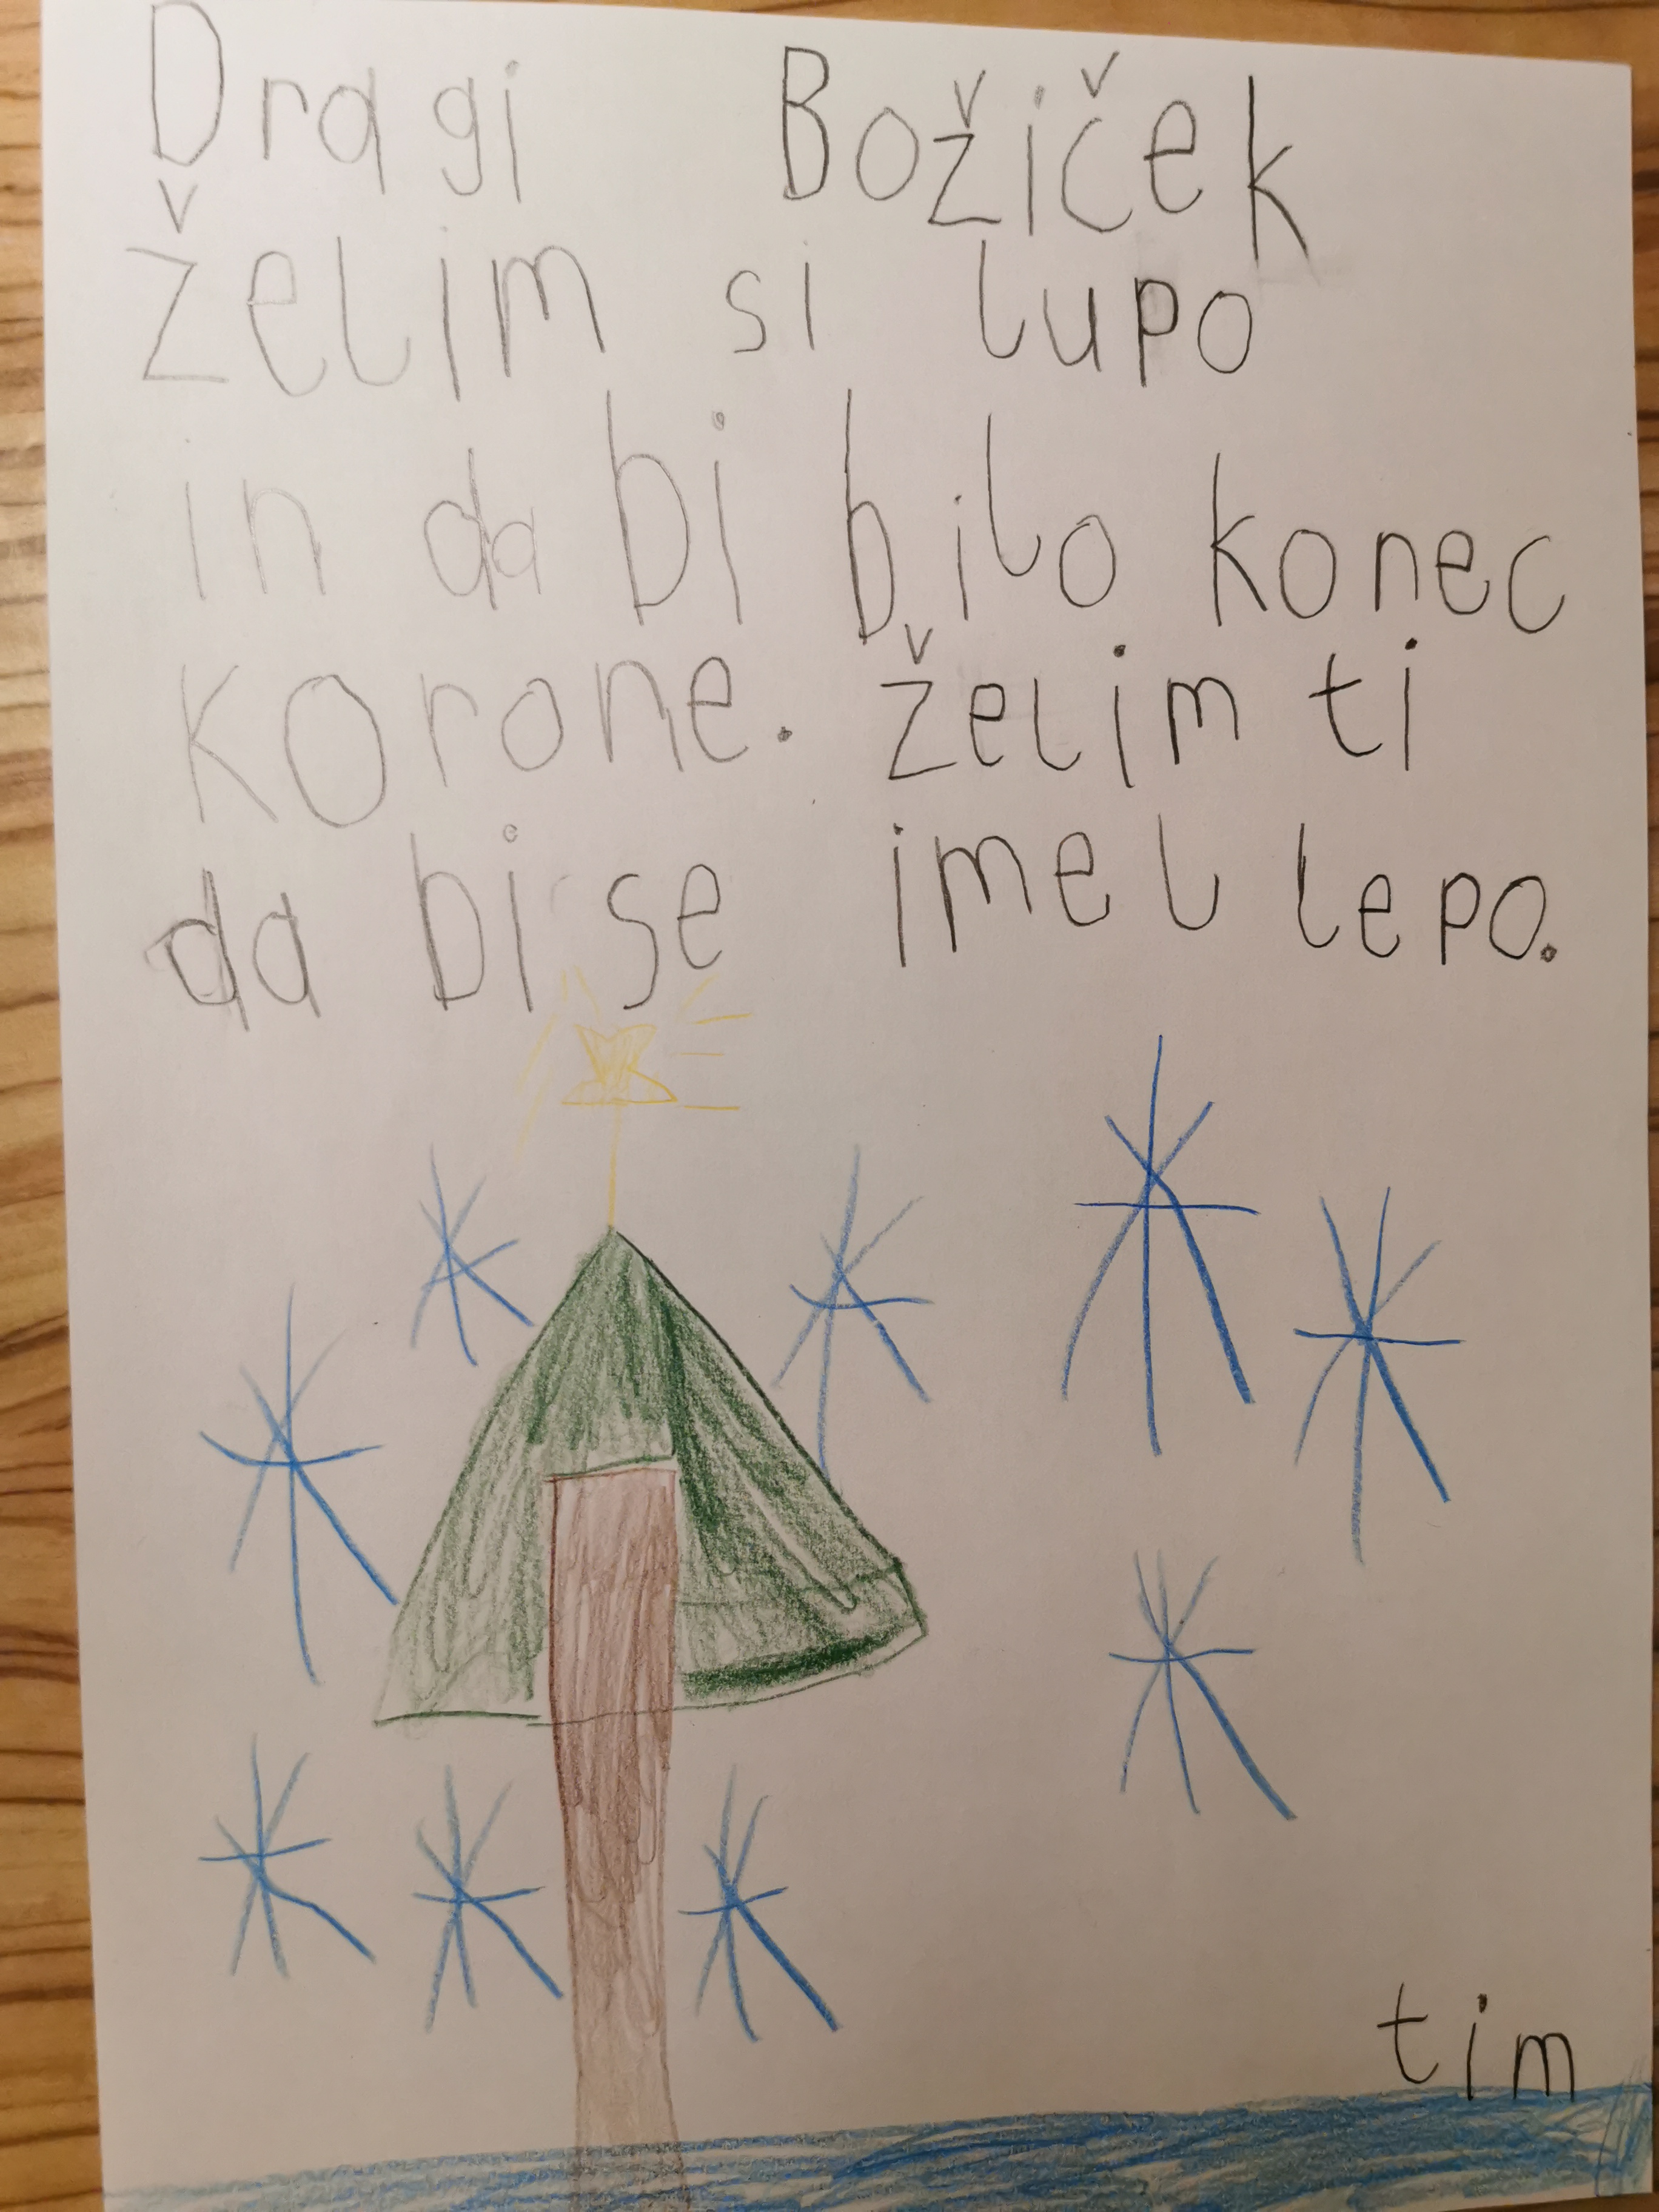 Dragi Božiček
želim si lupo
in da bi bilo konec
korone. želim ti
da bi se imel lepo.
tim